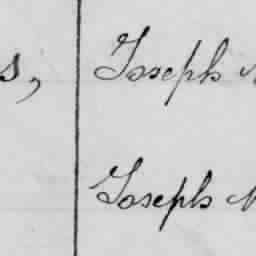 s, Joseph
Joseph